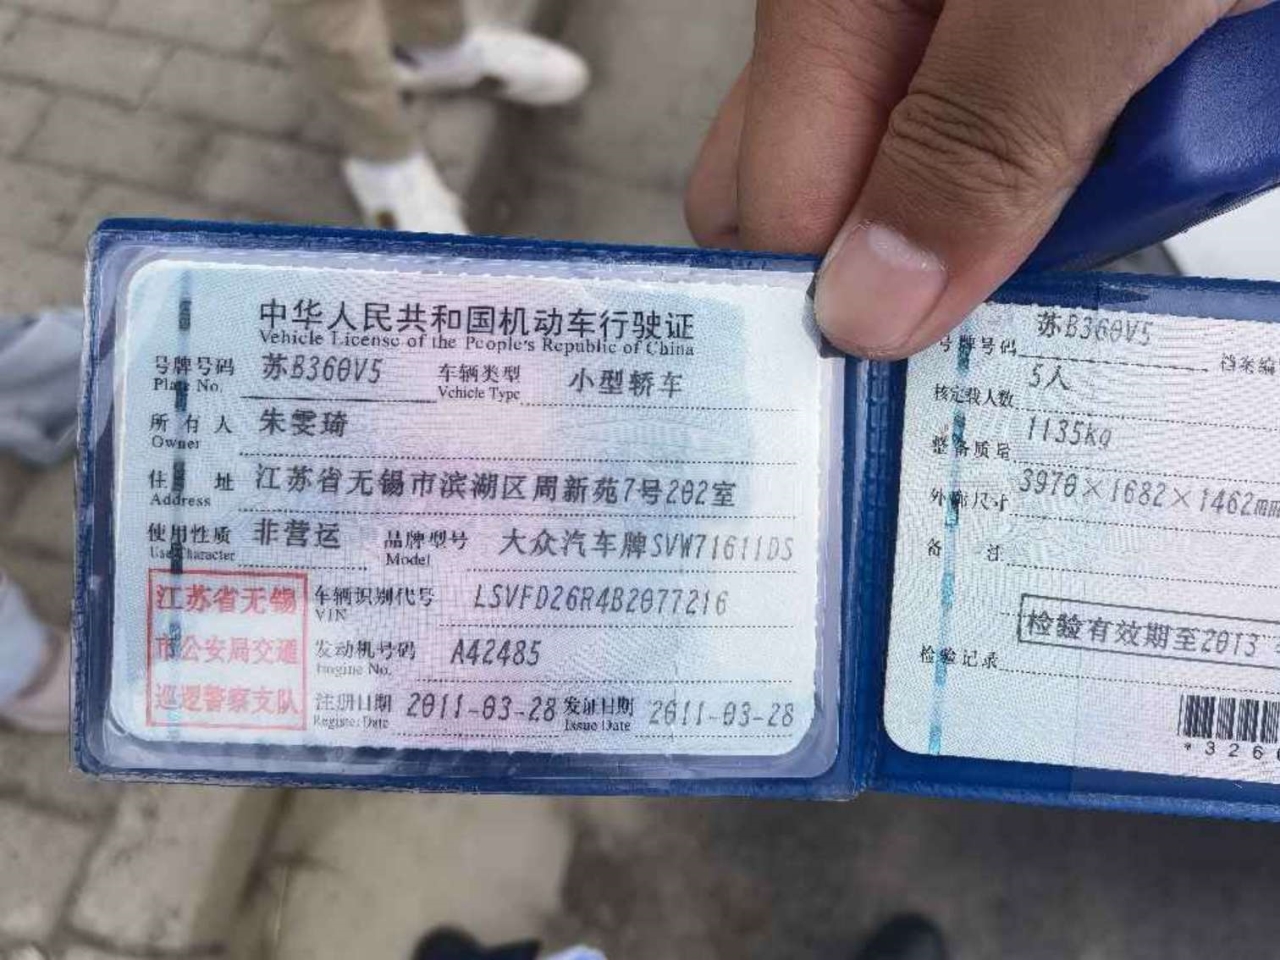 中华人民共和国机动车行驶证
Vehicle License of the People's Republic of China
号牌号码 苏B360V5 车辆类型 小型轿车
Plate No. Vehicle Type
所有人 朱雯琦
Owner
住址 江苏省无锡市滨湖区周新苑7号202室
Address
使用性质 非营运 品牌型号 大众汽车牌SVW71611DS
Use Character Model
车辆识别代号 LSVFD26R4B2077216
VIN
发动机号码 A42485
Engine No.
注册日期 2011-03-28 发证日期 2011-03-28
Register Date Issue Date
江苏省无锡
市公安局交通
巡逻警察支队
号牌号码 苏B360V5 档案编
核定载人数 5人
整备质量 1135kg
外廓尺寸 3970×1682×1462mm
备注
检验有效期至2013
检验记录
*326